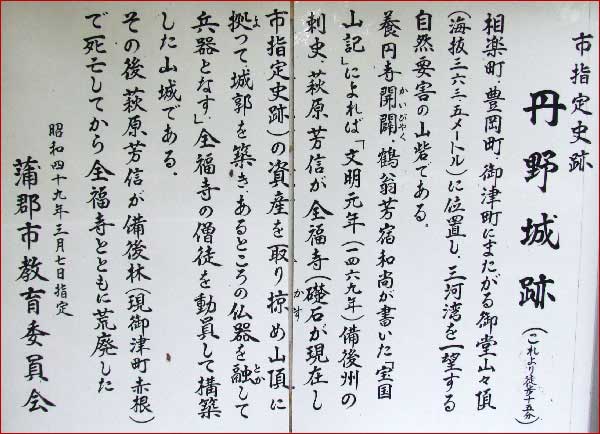 市指定史跡
丹野城跡
(これより徒歩十五分)
相楽町・豊岡町・御津町にまたがる御堂山々頂
(海抜三六三・五メートル)に位置し、三河湾を一望する
自然要害の山砦である。
養円寺開闢鶴翁芳宿和尚が書いた「宝国
かいびゃく
山記」によれば「文明元年(一四六九年)備後州の
刺史、萩原芳信が全福寺(礎石が現在し
市指定史跡)の資産を取り掠め山頂に
かす
拠って城郭を築き、あるところの仏器を融して
よ
とか
兵器となす」全福寺の僧徒を動員して構築
した山城である。
その後萩原芳信が備後林(現御津町赤根)
で死亡してから全福寺とともに荒廃した
昭和四十九年三月七日指定
蒲郡市教育委員会